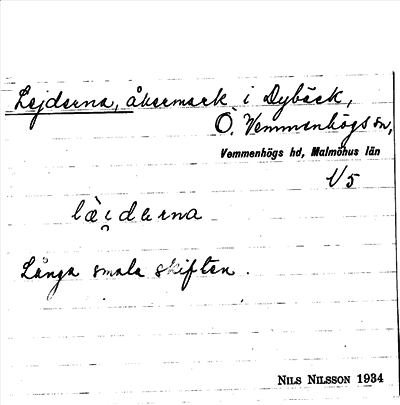 Lejderna, åkermark i Dybäck,
Ö. Vemmenhögs sn,
Vemmenhögs hd, Malmöhus län
1/5
lèi̯derna
Långa smala skiften.
NILS NILSSON 1934